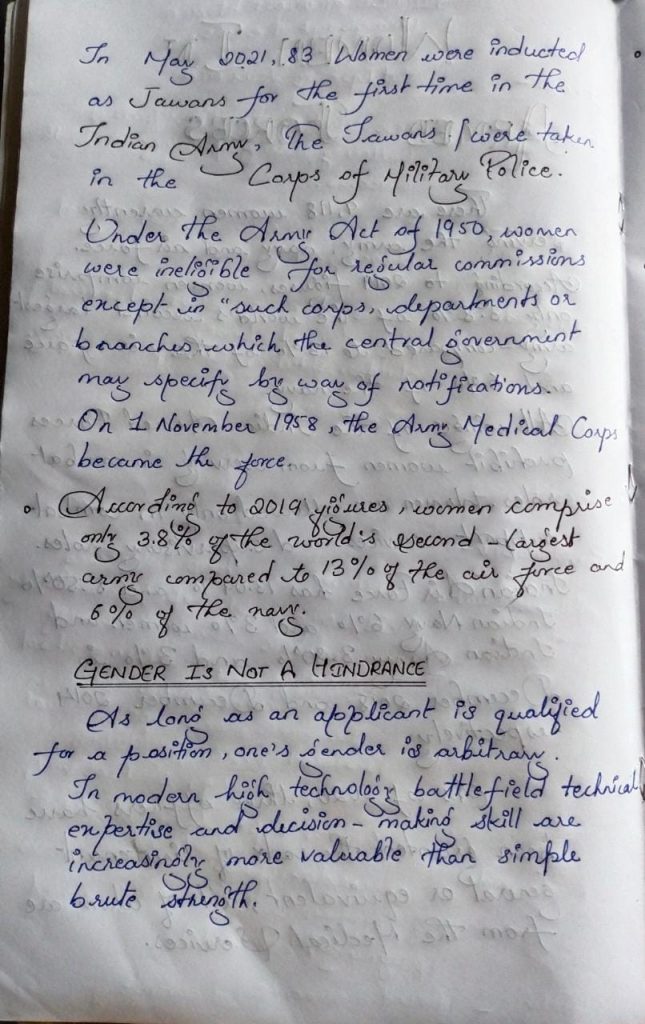 In May 2021, 83 Women were inducted
as Jawans for the first time in the
Indian Army, The Jawans were taken
in the Corps of Military Police.
Under the Army Act of 1950, women
were ineligible for regular commissions
except in "such corps, departments or
branches which the central government
may specify by way of notifications.
On 1 November 1958, the Army Medical Corps
became the force
According to 2019 figures, women comprise
only 3.8% of the world's second-largest
army compared to 13% of the air force and
6% of the navy.
GENDER IS NOT A HINDRANCE
As long as an applicant is qualified
for a position, one's gender is arbitrary.
In modern high technology battlefield technical
expertise and decision-making skill are
increasingly more valuable than simple
brute strength.